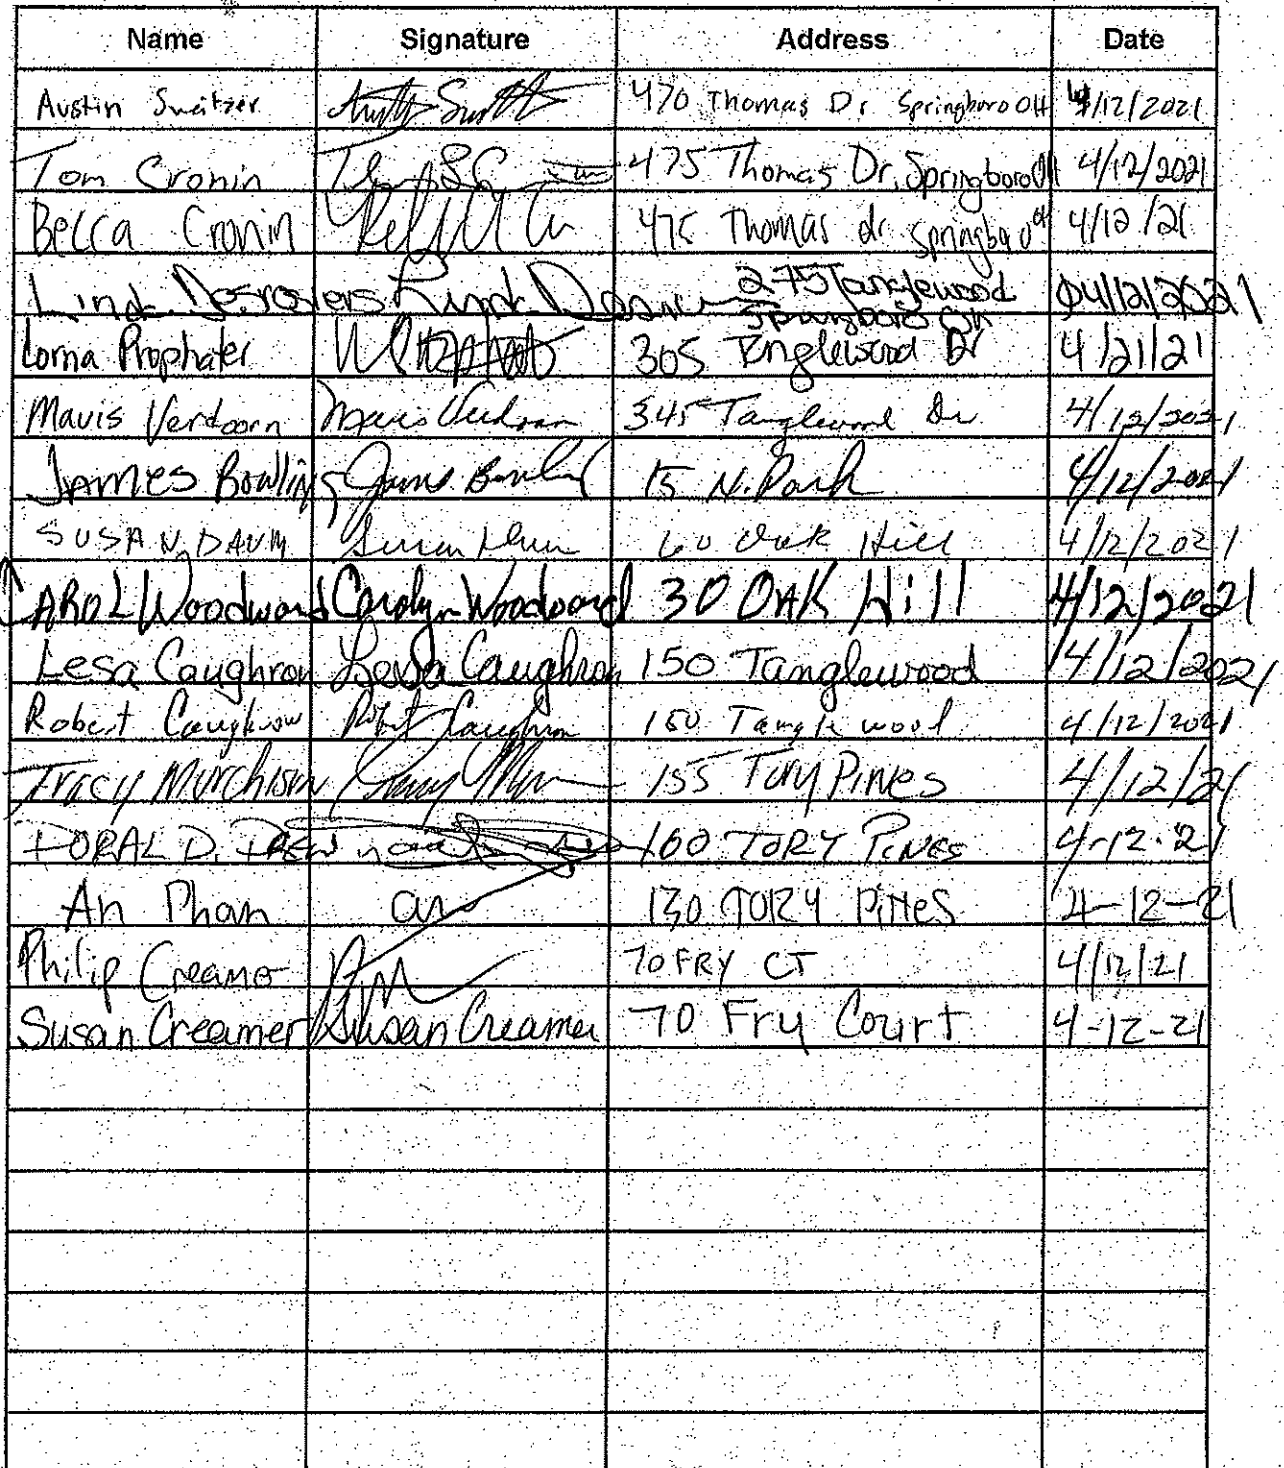 Name Signature Address Date
Austin Sweitzer 470 Thomas Dr Springboro OH 4/12/2021
Tom Cronin 475 Thomas Dr, Springboro OH 4/12/2021
Becca Cronin 475 Thomas dr springboro OH 4/12/21
Linda Desrosiers 275 Tanglewood 04/12/2021
Springboro OH
Lorna Prophater 305 Tanglewood Dr 4/21/21
Mavis Verdoorn Mavis Verdoorn 345 Tanglewood Dr 4/12/2021
James Bowling James Bowling 15 N. Park 4/12/2021
SUSAN DAUM Susan Daum 60 Oak Hill 4/12/2021
CAROL Woodward Carolyn Woodward 30 OAK Hill 4/12/2021
Lesa Caughron Lesa Caughron 150 Tanglewood 4/12/2021
Robert Caughron Robert Caughron 150 Tanglewood 4/12/2021
Tracy Murchison 155 Tory Pines 4/12/21
DORAL D. 160 TORY PINES 4-12-21
An Phan an 130 TORY PiNes 4-12-21
Philip Creamer 70 FRY CT 4/12/21
Susan Creamer Susan Creamer 70 Fry Court 4-12-21